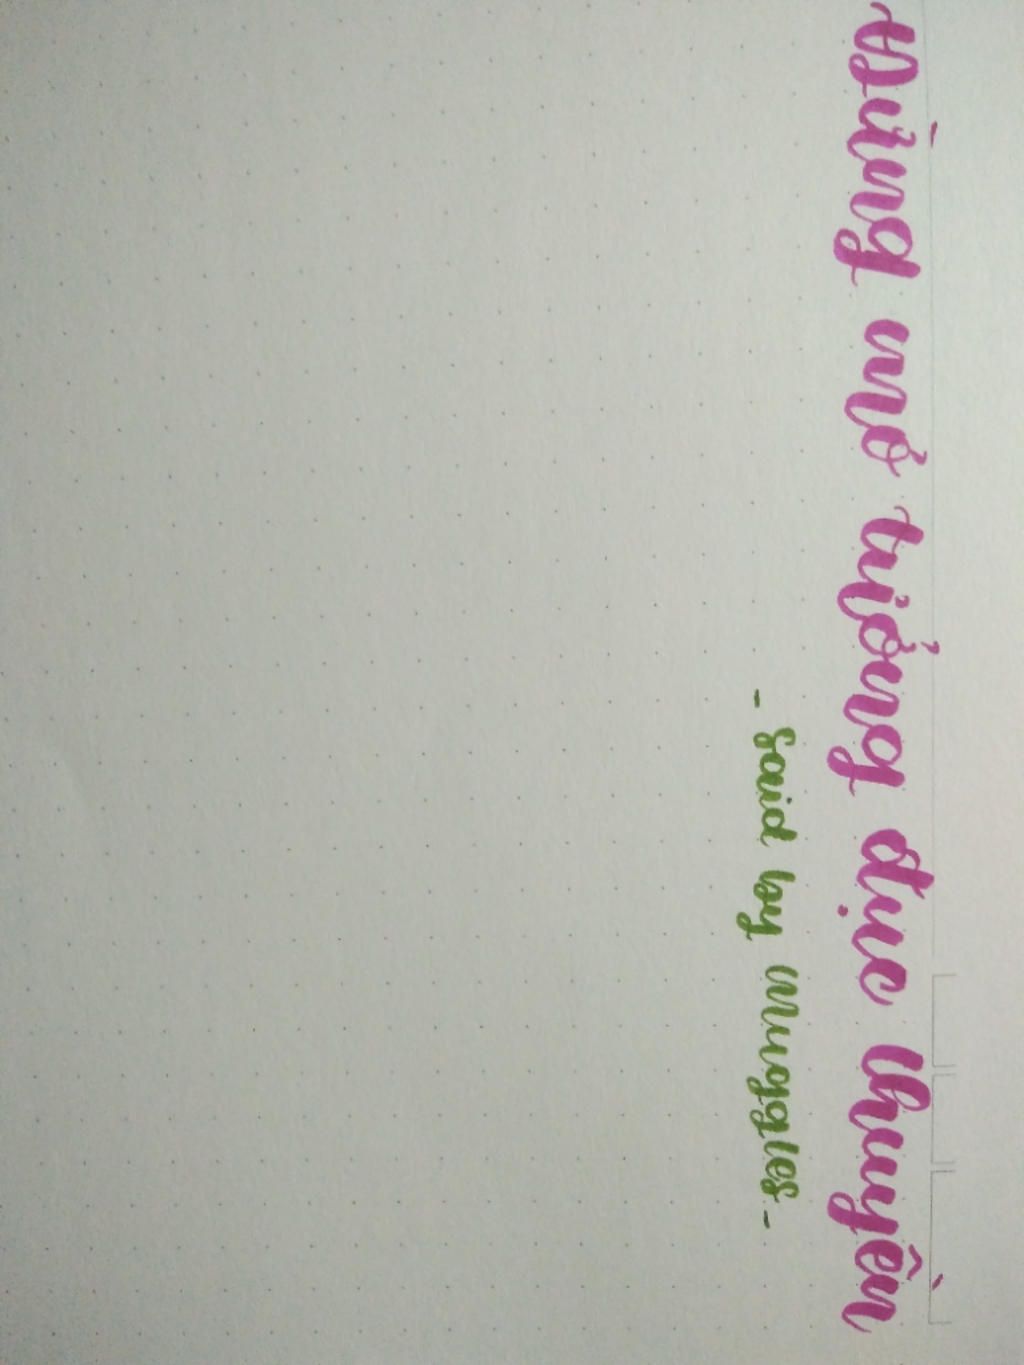 Đừng mơ tưởng đục thuyền
- Said by muggles -